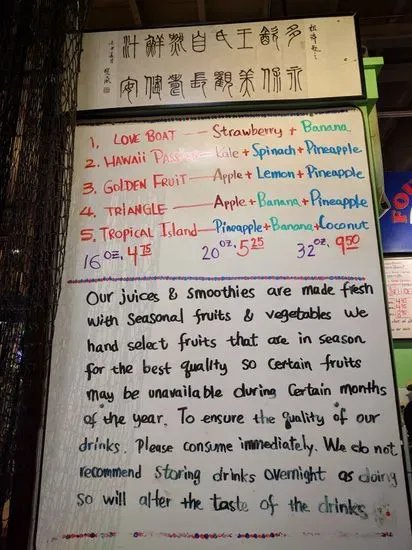 汁鮮然自氏王飲多
安健養長觀美係永
1. LOVE BOAT — Strawberry + Banana
2. HAWAII — Kale + Spinach + Pineapple
3. GOLDEN FRUIT — Apple + Lemon + Pineapple
4. TRIANGLE — Apple + Banana + Pineapple
5. TROPICAL Island — Pineapple + Banana + Coconut
16 oz. 4.75 20 oz. 5.25 32 oz. 9.50
Our juices & smoothies are made fresh
with seasonal fruits & vegetables We
hand select fruits that are in season
for the best quality so certain fruits
may be unavailable during certain months
of the year. To ensure the quality of our
drinks. Please consume immediately. We do not
recommend storing drinks overnight as doing
so will alter the taste of the drinks